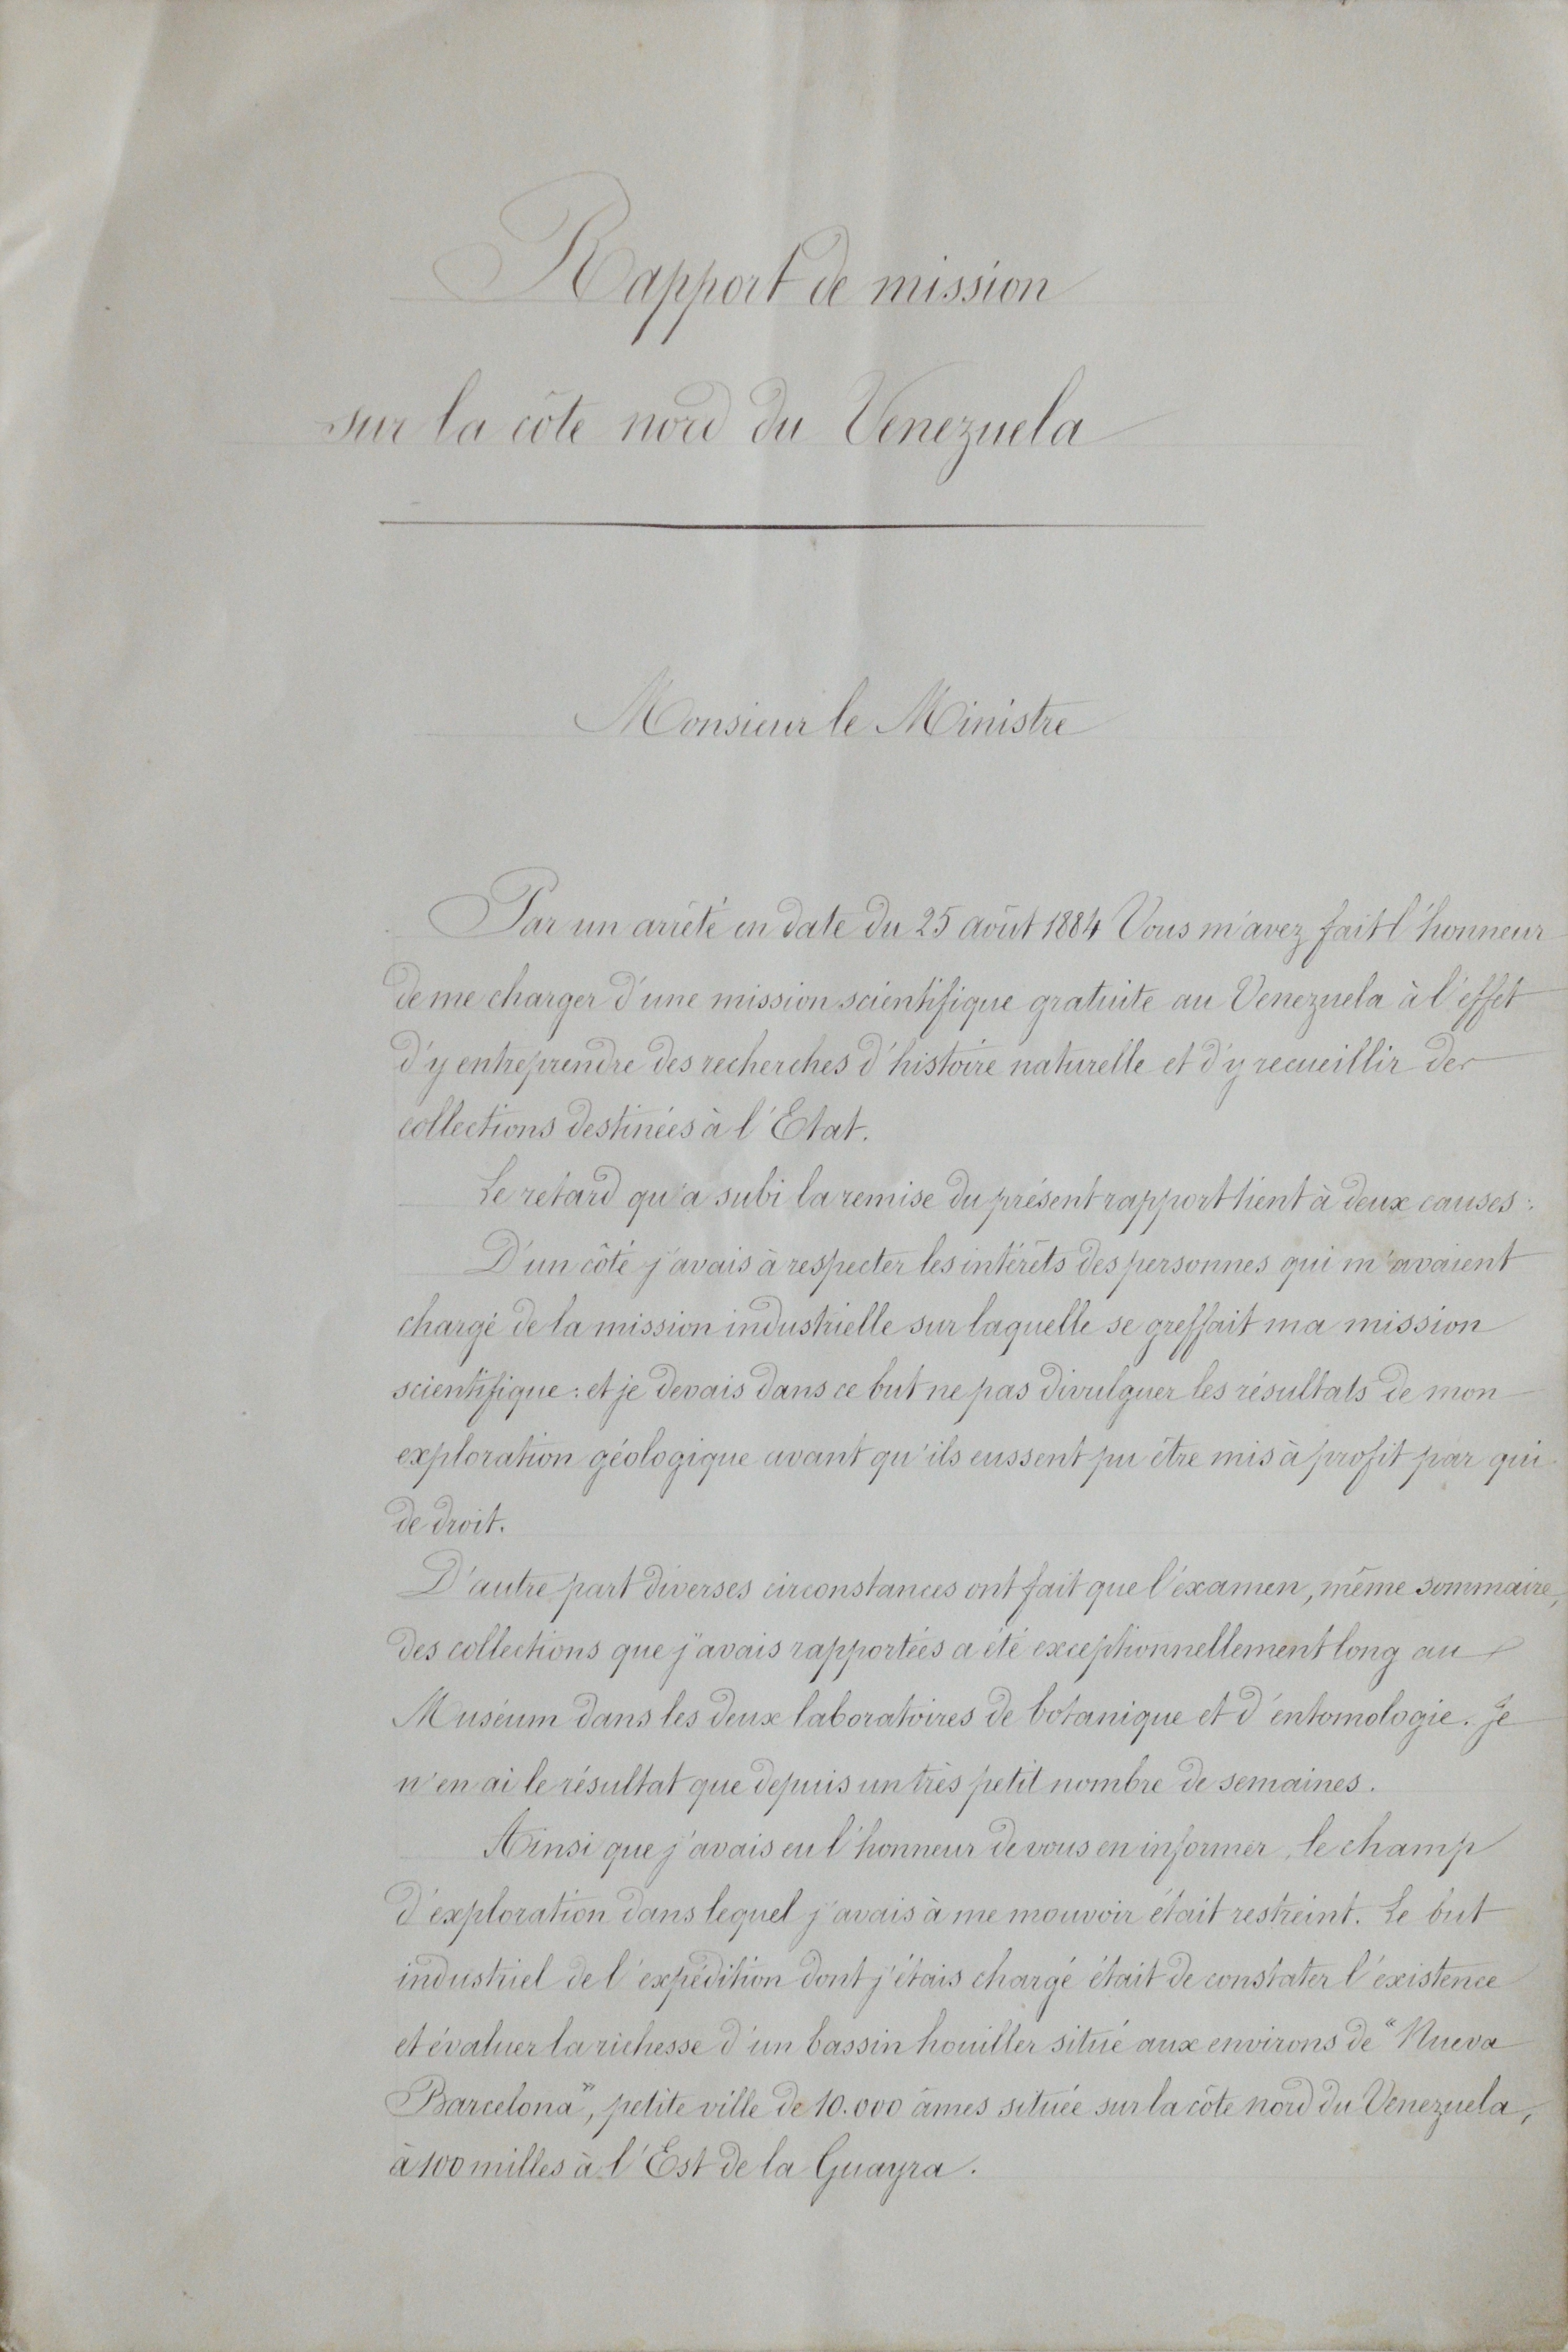 Rapport de mission
sur la côte nord du Venezuela
Monsieur le Ministre
Par un arrêté en date du 25 août 1884 Vous m'avez fait l'honneur
de me charger d'une mission scientifique gratuite au Venezuela à l'effet
d'y entreprendre des recherches d'histoire naturelle et d'y recueillir des
collections destinées à l'Etat.
Le retard qu'a subi la remise du présent rapport tient à deux causes :
D'un côté j'avais à respecter les intérêts des personnes qui m'avaient
chargé de la mission industrielle sur laquelle se greffait ma mission
scientifique : et je devais dans ce but ne pas divulguer les résultats de mon
exploration géologique avant qu'ils eussent pu être mis à profit par qui
de droit.
D'autre part diverses circonstances ont fait que l'examen, même sommaire,
des collections que j'avais rapportées a été exceptionnellement long au
Muséum dans les deux laboratoires de botanique et d'entomologie. Je
n'en ai le résultat que depuis un très petit nombre de semaines.
Ainsi que j'avais eu l'honneur de vous en informer, le champ
d'exploration dans lequel j'avais à me mouvoir était restreint. Le but
industriel de l'expédition dont j'étais chargé était de constater l'existence
et évaluer la richesse d'un bassin houiller situé aux environs de "Nueva
Barcelona", petite ville de 10.000 âmes située sur la côte nord du Venezuela,
à 100 milles à l'Est de la Guayra.